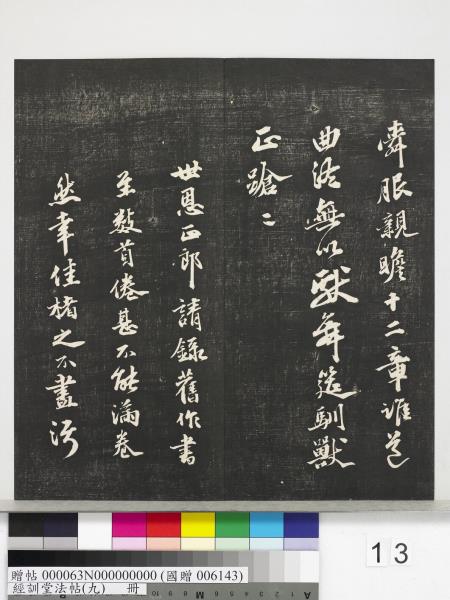 服親瞻十二章誰道
曲終無以獻舞筵馴獸
正蹌〻
世恩正郎請錄舊作書
至數首倦甚不能滿卷
然幸佳楮之不盡污
贈帖 000063N000000000 (國贈 006143)
經訓堂法帖(九) 冊
13